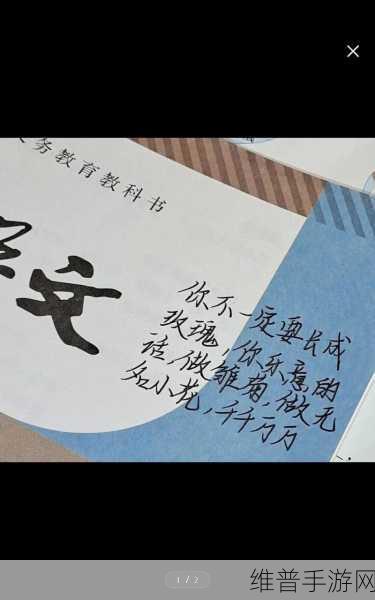 义务教育教科书
语文
你不一定要长成
玫瑰，你乐意的
话，做雏菊，做无
名小花，千千万万
1 / 2
维普手游网